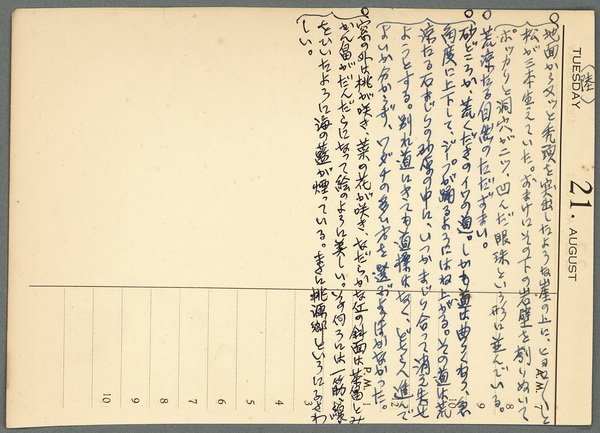 (陸)
TUESDAY 21. AUGUST
○地面からヌッと禿頭を突出したような崖の上に、ヒョロヒョロと
松が三本生えていた。おまけにその下の岩壁を刳りぬいて
ポッカリと洞穴が二ツ、凹んだ眼球という形に並んでいる。
○荒涼たる自然のたたずまい。
○砂どころか、荒くだきのイワの道。しかも道は曲りくねり、急
角度に上下して、ジープが踊るようにはね上がる。その道は荒
涼たる石まじりの砂原の中に、いつかまじり合って消え失せ
ようとする。別れ道にきても道標はなく、どちらへ進んで
よいか分からず、ワダチの多い方を選ぶよりほかなかった。
○窓の外は桃が咲き、菜の花が咲き、なだらかな丘の斜面は茶畠とみ
かん畠がだんだらになって絵のように美しい。その向うには一筋、線
をひいたように海の藍が煙っている。まさに桃源郷というにふさわ
しい。
A.M.
8
9
10
12
P.M.
1
3
4
5
6
7
8
9
10